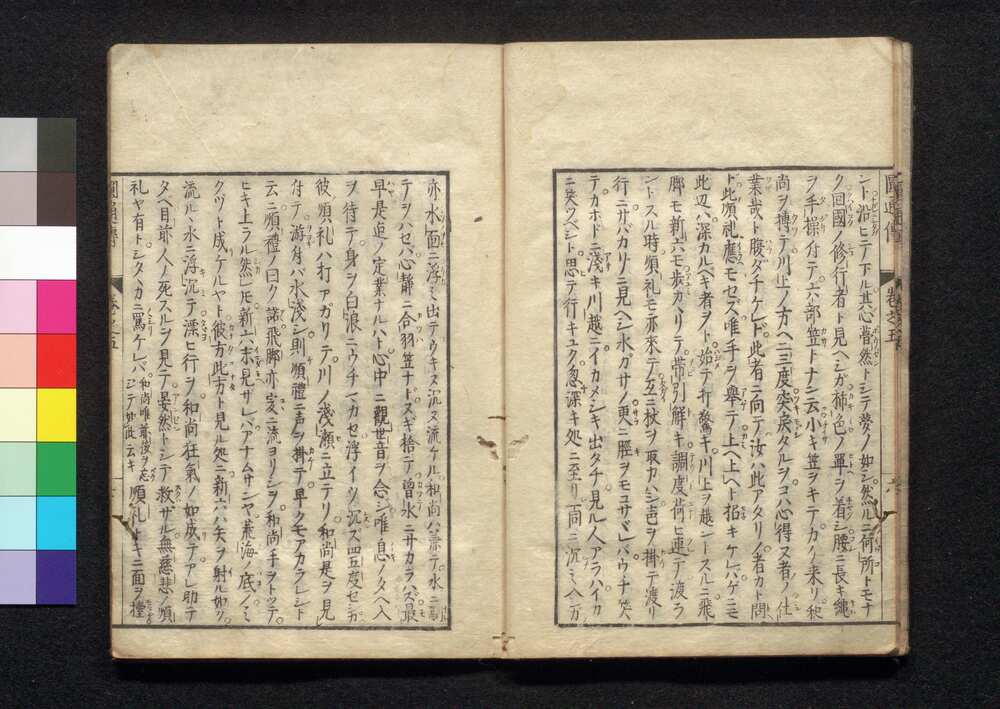 ント沿ヒテ下ル其心瞢然トシテ夢ノ如シ然ルニ何所トモナ
ク回國ノ修行者ト見ヘシガ柿色ノ單ヲ着シ腰ニ長キ繩
ヲ手操付テ六部笠トナン云小キ笠ヲキテカノ来リ和
尚ヲ搏テ川上ノ方ヘ二三度突戻タルヲコハ心得ス者ノ仕
業哉ト腹ダチケレド此者ニ向テ汝ハ此アタリノ者カト問
ド此順礼應モセズ唯手ヲ擧テ上ヘ上ヘト招キケレバゲニモ
此辺ハ深カルベキ者ヲト始テ打驚キ川上ヲ越ントスルニ飛
脚モ新六モ歩カヘリテ帯引解キ調度荷ヒ連テ渡ラ
ントスル時順礼モ亦來テ互ニ杖ヲ取カハシ声ヲ掛テ渡リ
行ニサバカリニ見ヘシ水カサノ更ニ脛ヲモコサヾレバウチ笑
テカホドニ淺キ川越ニイカメシキ出タチ見ル人アラハイカ
ニ笑ウベシト思テ行キユク忽深キ処ニ至リ一同ニ沉ミ入万
亦水面ニ浮ミ出テウキヌ沉ヌ流ケル和尚ハ兼テ水ニ
テヲハセバ心静ニ合羽笠ナトヌギ捨テ增水ニサカラハズ最
早是迠ノ定業ナルハト心中ニ觀世音ヲ念シ唯息ノタヘ入
ヲ待テ身ヲ白浪ニウチマカセ浮イツ沉ズ四五度セシガ
彼順礼ハ打アガリテ川ノ浅瀬ニ立テリ和尚是ヲ見
付テ游付バ水淺シ則順禮ニ声ヲ掛テ早クモアカラレシト
云ニ順禮ノ曰ク諾飛脚亦爰ニ流ヨリシヲ和尚手ヲトツテ
ヒキ上ラル然レ𪜈新六未見サレバアナムサンヤ蒼海ノ底ノミ
クヅト成ケルヤト彼方此方ト見ル処ニ新六ハ矢ヲ射ル如ク
流ル水ニ浮沉テ漂ヒ行ヲ和尚狂氣ノ如成テアレ助テ
タベ目前人ノ死スルヲ見テ晏然トシテ救ザル無慈悲ノ順
礼ヤ有トシタヽカニ罵ケレバ和尚唯前後ヲ忘シテ如此云キ順礼キニ面ヲ撞